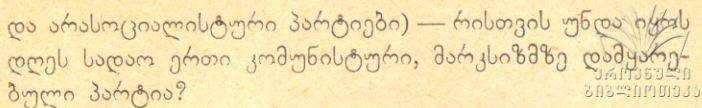 და არასოციალისტური პარტიები) — რისთვის უნდა იყოს
დღეს სადაო ერთი კომუნისტური, მარკსიზმზე დამყარე-
ბული პარტია?
ეროვნული
ბიბლიოთეკა